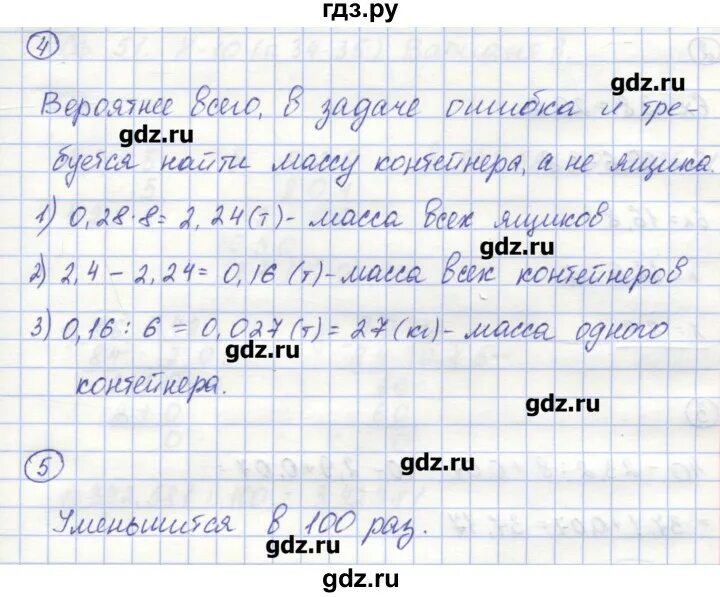 гдз.ру
4
gdz.ru
Вероятнее всего, в задаче ошибка и тре-
gdz.ru
буется найти массу контейнера, а не ящика.
1) 0,28·8= 2,24(т)- масса всех ящиков
gdz.ru
2) 2,4 - 2,24= 0,16 (т)-масса всех контейнеров
3) 0,16 : 6 = 0,027(т)= 27(кг)- масса одного
gdz.ru
контейнера.
gdz.ru
5
gdz.ru
Уменьшится в 100 раз.
gdz.ru
gdz.ru